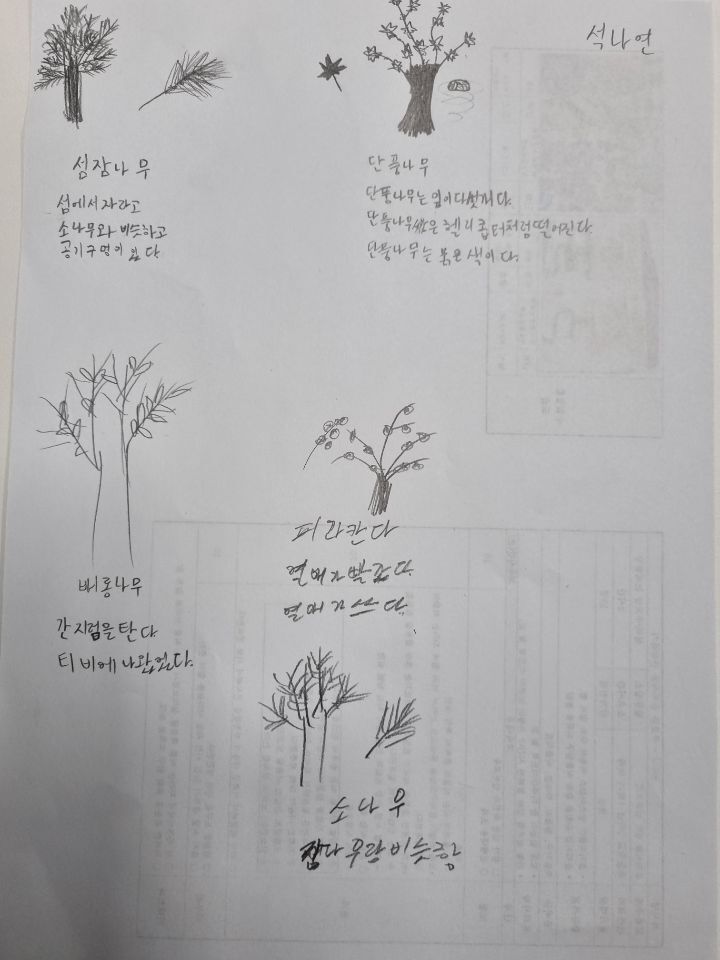 석나연
섬잠나무
섬에서 자라고
소나무와 비슷하고
공기구멍이 있다
단풍나무
단풍나무는 잎이 다섯개다.
단풍나무씨은 헬리콥터처럼 떨어진다.
단풍나무는 붉은 색이다.
배롱나무
간지럼을 탄다
티비에 나왔었다.
피라칸다
열매가 빨갛다.
열매가 쓰다.
소나무
비슷함